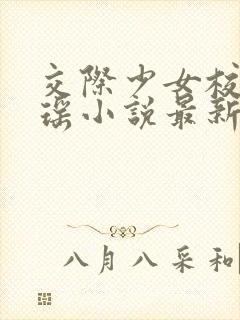 交際少女校
瑶小説最新
八月八采和